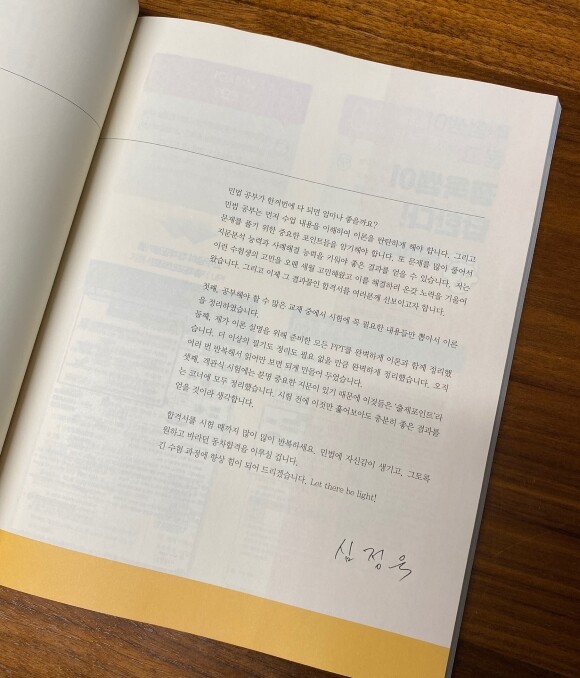 민법 공부가 한꺼번에 다 되면 얼마나 좋을까요?
민법 공부는 먼저 수업 내용을 이해하여 이론을 탄탄하게 해야 합니다. 그리고
문제를 풀기 위한 중요한 포인트들을 암기해야 합니다. 또 문제를 많이 풀어서
지문분석 능력과 사례해결 능력을 키워야 좋은 결과를 얻을 수 있습니다. 저는
이런 수험생의 고민을 오랜 세월 고민해왔고 이를 해결하려 온갖 노력을 기울여
왔습니다. 그리고 이제 그 결과물인 합격서를 여러분께 선보이고자 합니다.
첫째, 공부해야 할 수 많은 교재 중에서 시험에 꼭 필요한 내용들만 뽑아서 이론
을 정리하였습니다.
둘째, 제가 이론 설명을 위해 준비한 모든 PPT를 완벽하게 이론과 함께 정리했
습니다. 더 이상의 필기도 정리도 필요 없을 만큼 완벽하게 정리했습니다. 오직
여러 번 반복해서 읽어만 보면 되게 만들어 두었습니다.
셋째, 객관식 시험에는 분명 중요한 지문이 있기 때문에 이것들은 '출제포인트'라
는 코너에 모두 정리했습니다. 시험 전에 이것만 훑어보아도 충분히 좋은 결과를
얻을 것이라 생각합니다.
합격서를 시험 때까지 많이 많이 반복하세요. 민법에 자신감이 생기고, 그토록
원하고 바라던 동차합격을 이루실 겁니다.
긴 수험 과정에 항상 힘이 되어 드리겠습니다. Let there be light!
심정욱